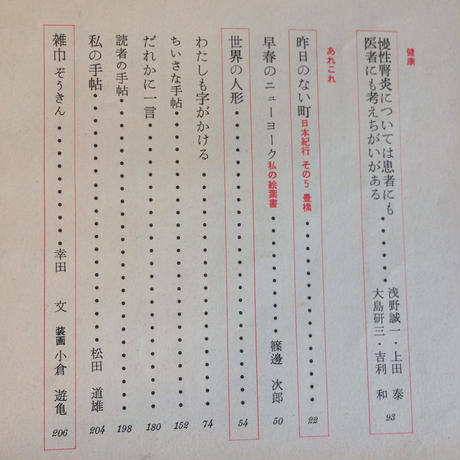 健康
慢性腎炎については患者にも
医者にも考えちがいがある
浅野誠一・上田 泰
大島研三・吉利 和
93
あれこれ
昨日のない町 日本紀行 その5 豊橋
22
早春のニューヨーク 私の絵葉書
篠邊 次郎
50
世界の人形
54
わたしも字がかける
74
ちいさな手帖
152
だれかに一言
180
読者の手帖
198
私の手帖
松田 道雄
204
雑巾 ぞうきん
幸田 文 装画 小倉 遊亀
206